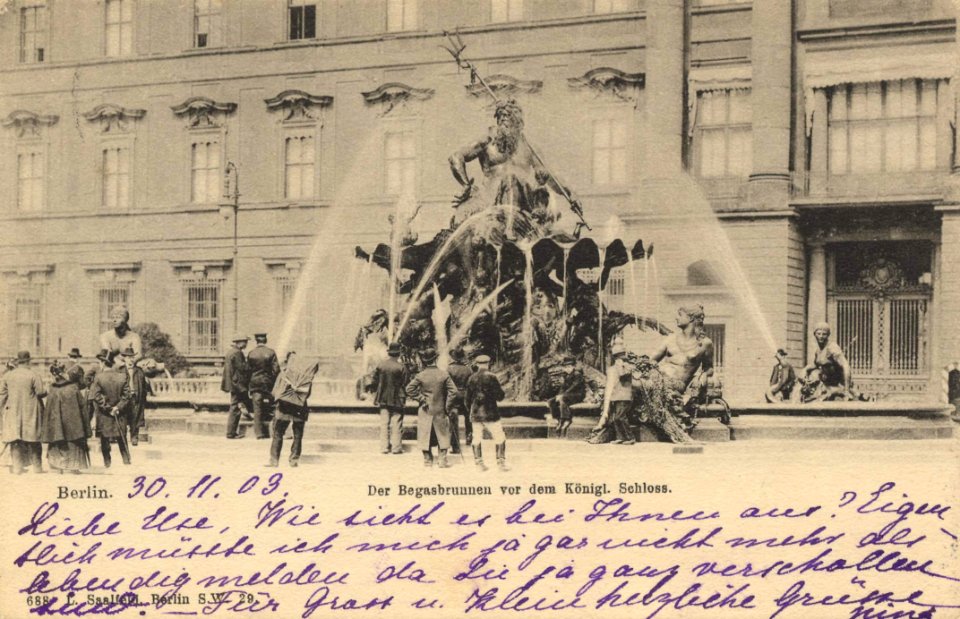 Berlin. 30. 11. 03.
Der Begasbrunnen vor dem Königl. Schloss.
Liebe Else, Wie sieht es bei Ihnen aus? Eigen
tlich müsste ich mich ja gar nicht mehr als
lebendig melden da Sie ja ganz verschollen
sind. – Für Gross u. Klein herzliche Grüsse
688 L. Saalfeld, Berlin S.W. 29.